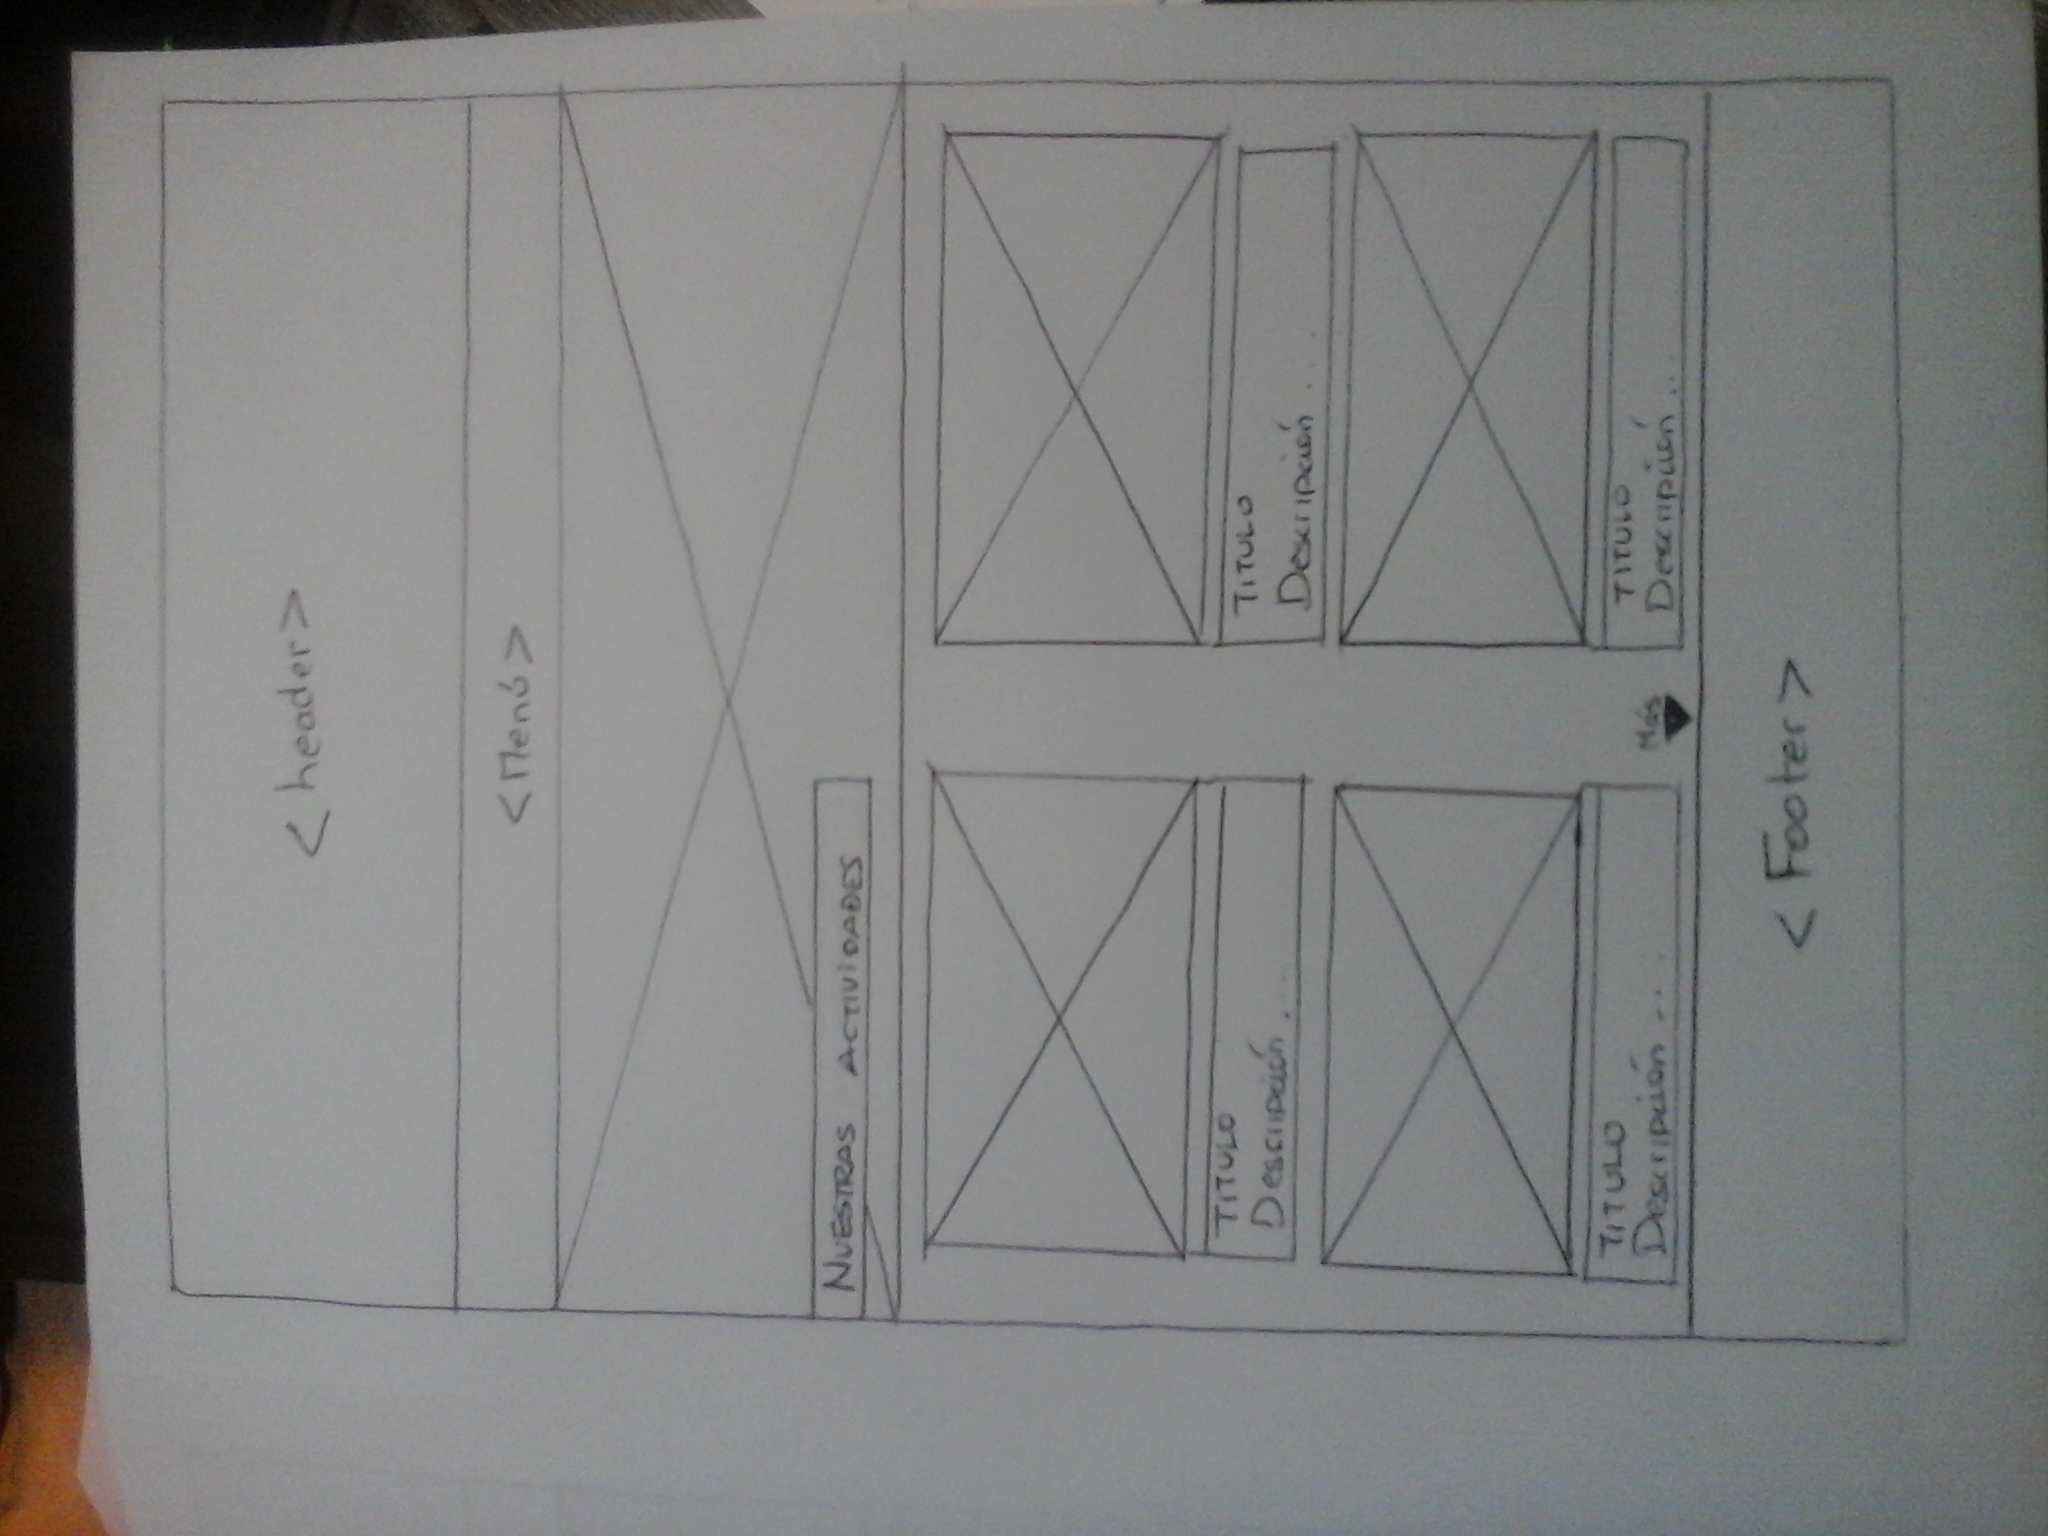 <header>
<Menú>
NUESTRAS ACTIVIDADES
TITULO
Descripción ...
TITULO
Descripción ...
TITULO
Descripción ...
TITULO
Descripción ...
Más
<Footer>